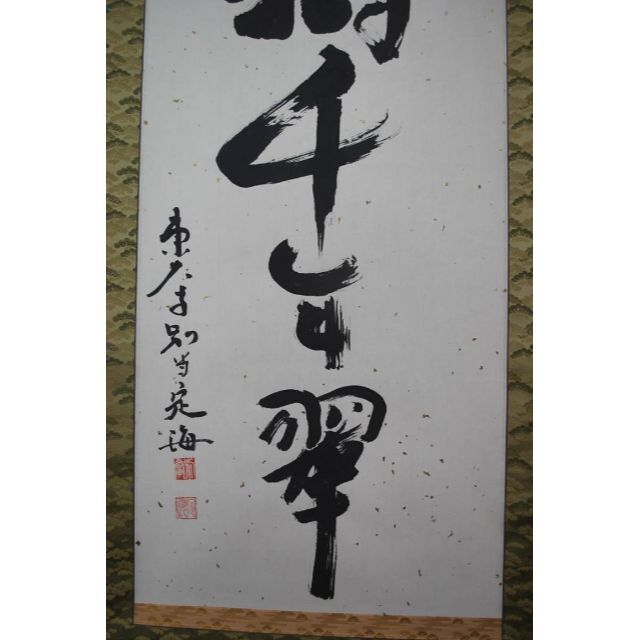 千年翠
東大寺別当定海